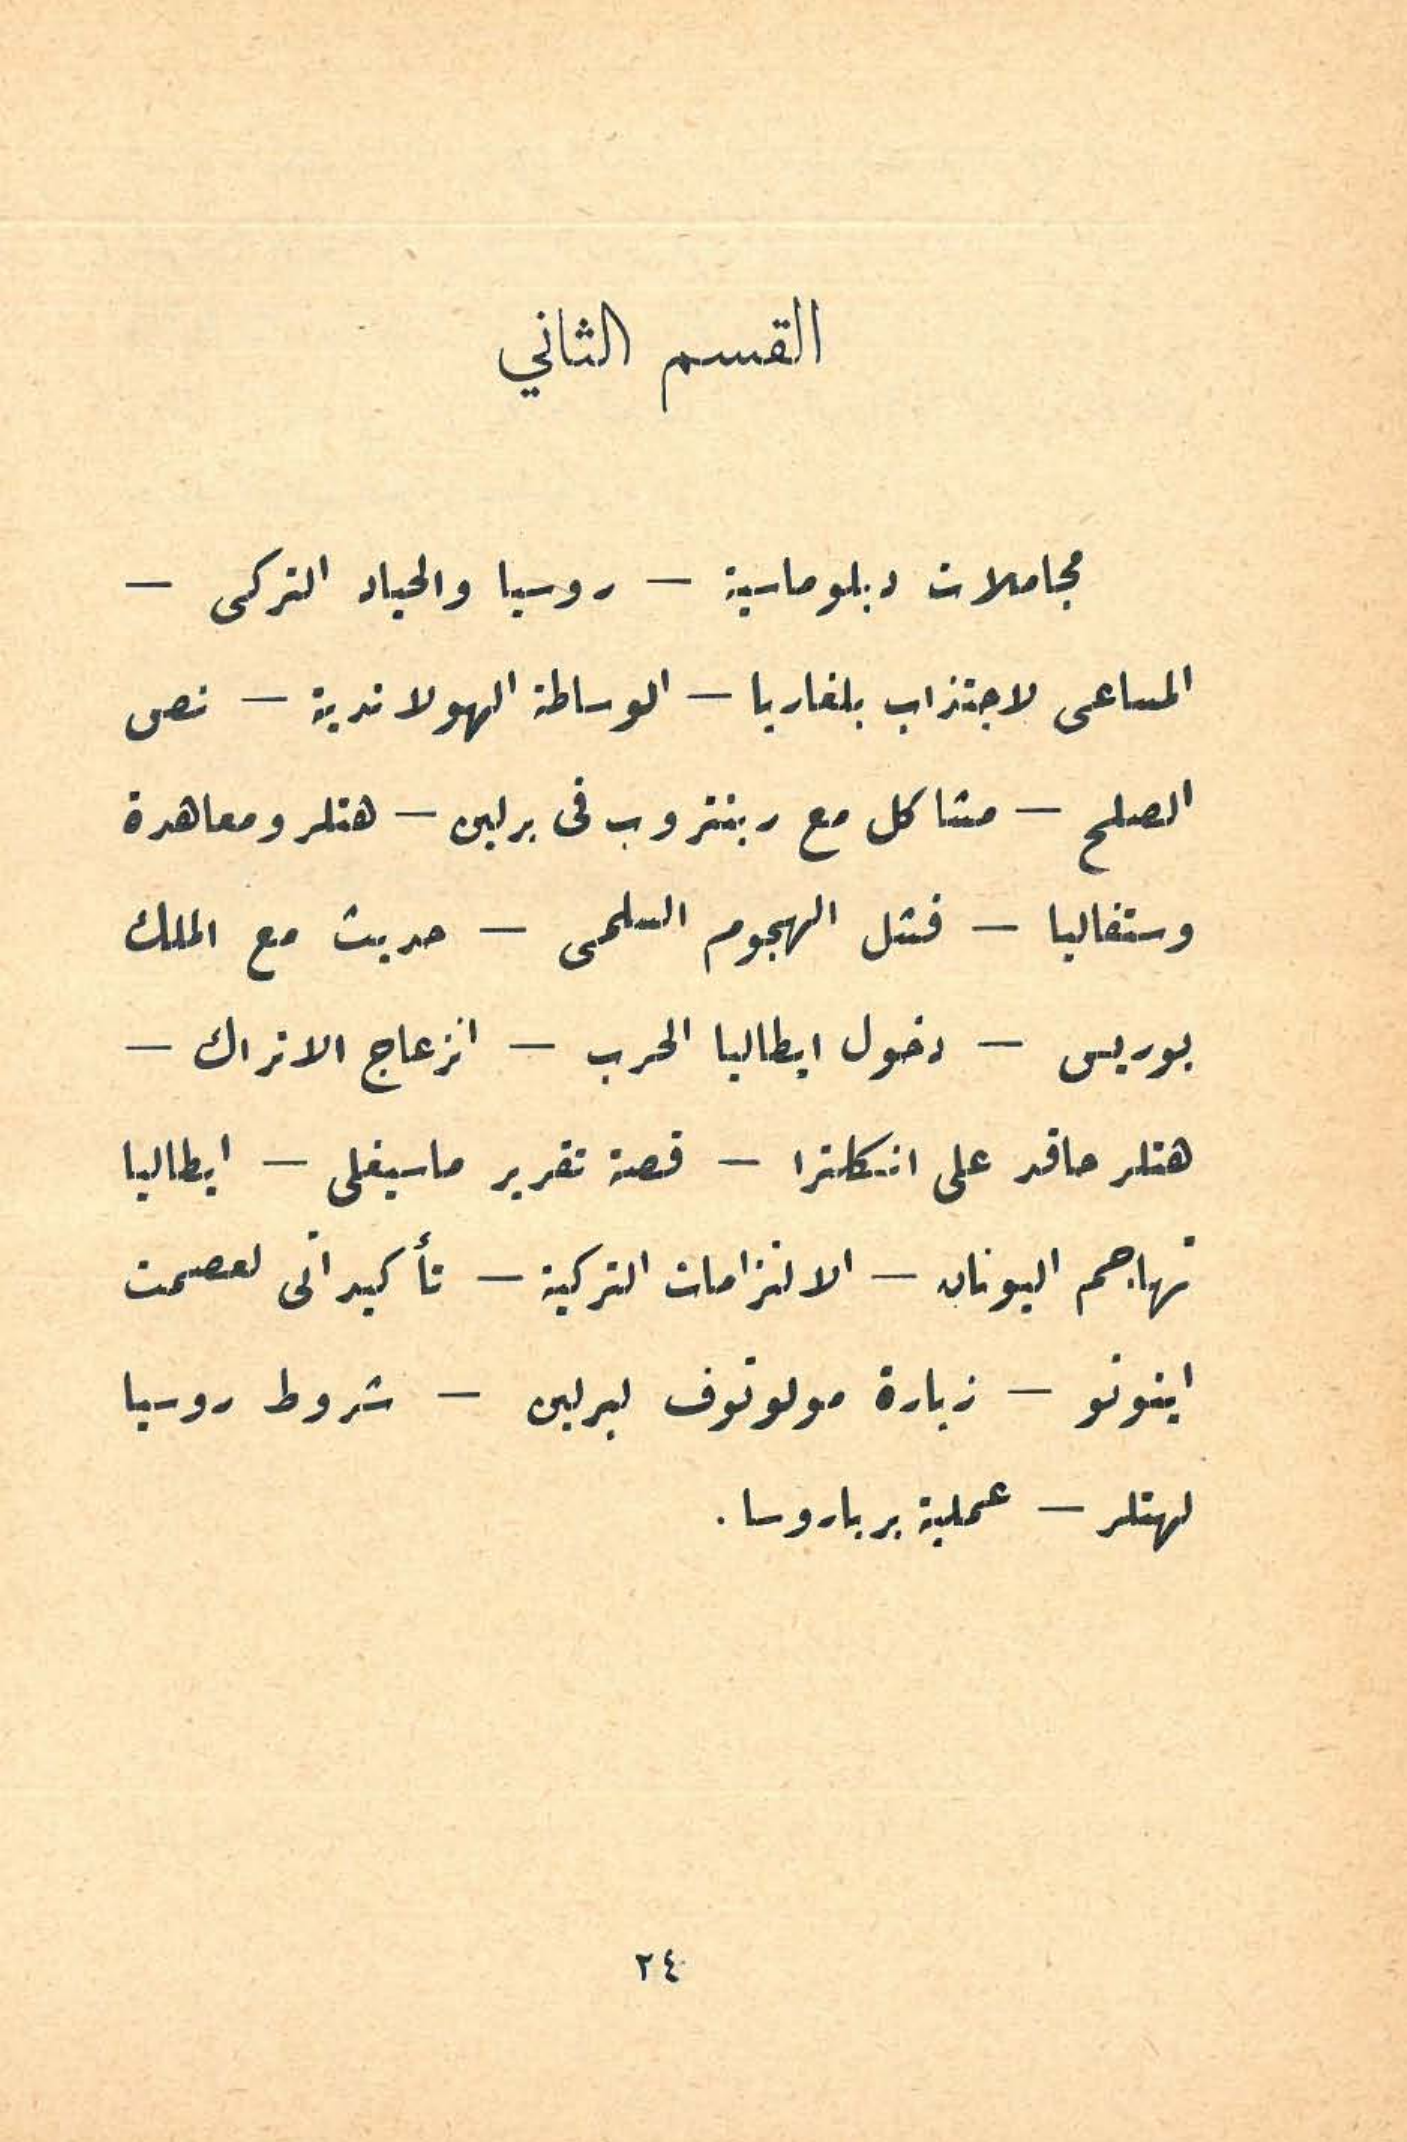 القسم الثاني
مجاملات دبلوماسية — روسيا والحياد التركى —
المساعى لاجتذاب بلغاريا — الوساطة الهولاندية — نص
الصلح — مشاكل مع ربنتروب فى برلين — هتلر ومعاهدة
وستفاليا — فشل الهجوم السلمى — حديث مع الملك
بوريس — دخول ايطاليا الحرب — انزعاج الاتراك —
هتلر حاقد على انكلترا — قصة تقرير ماسيغلى — ايطاليا
تهاجم اليونان — الالتزامات التركية — تأكيداتى لعصمت
اينونو — زيارة مولوتوف لبرلين — شروط روسيا
لهتلر — عملية برباروسا .
٢٤